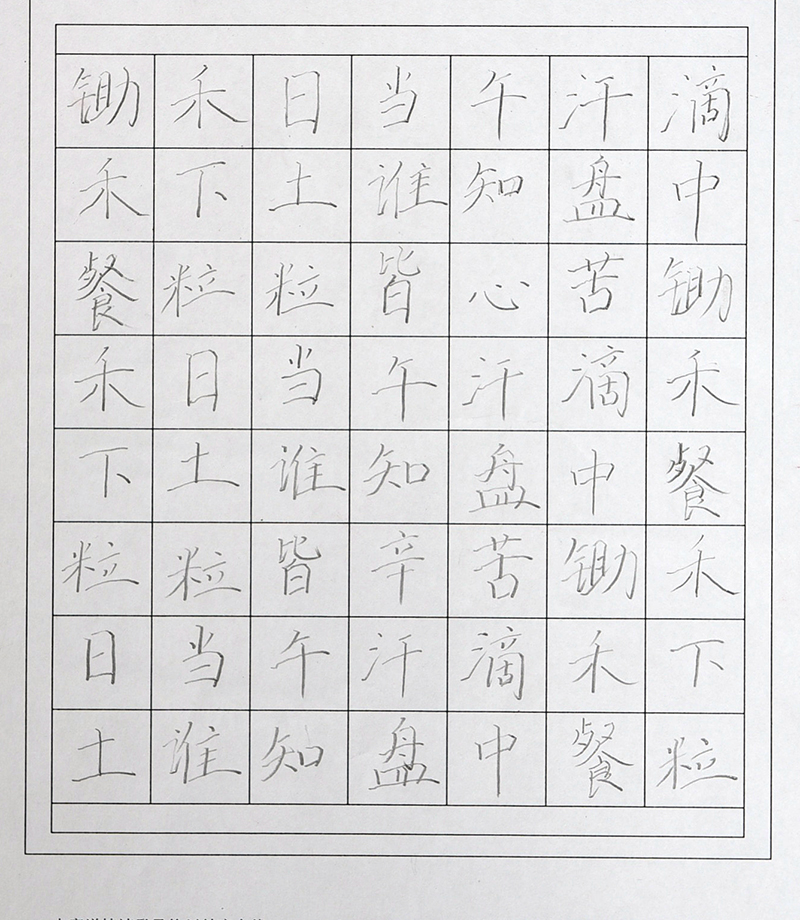 锄禾日当午汗滴
禾下土谁知盘中
餐粒粒皆心苦锄
禾日当午汗滴禾
下土谁知盘中餐
粒粒皆辛苦锄禾
日当午汗滴禾下
土谁知盘中餐粒